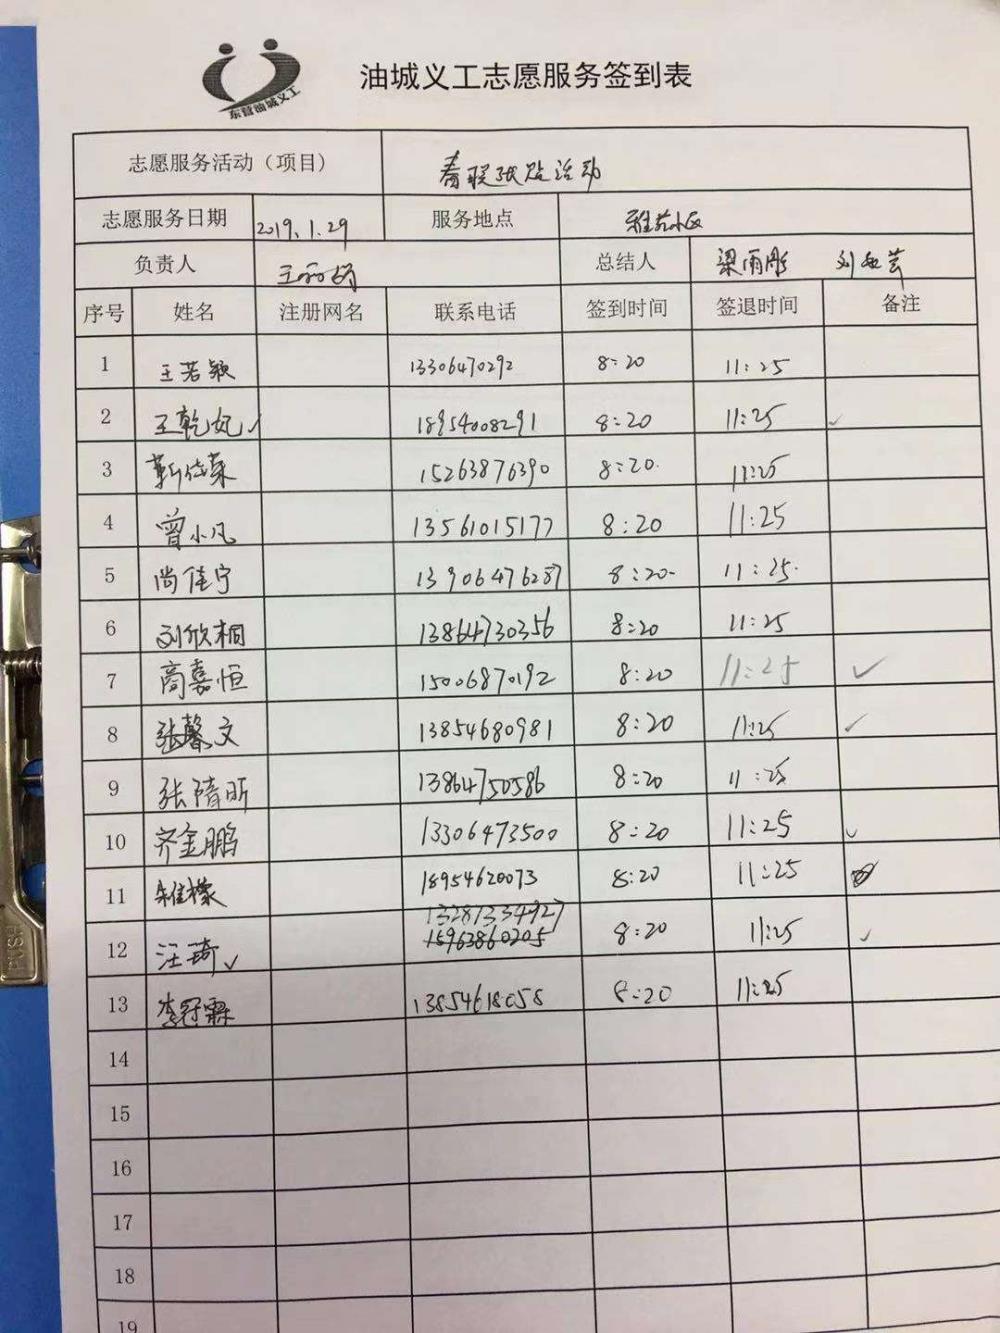 东营油城义工
油城义工志愿服务签到表
志愿服务活动（项目） 春联张贴活动
志愿服务日期 2019.1.29 服务地点 雅苑小区
负责人 王丽娟 总结人 梁雨彤 刘
序号 姓名 注册网名 联系电话 签到时间 签退时间 备注
1 王若颖 13306470292 8:20 11:25
2 王乾妃✓ 18954008291 8:20 11:25 ✓
3 靳佳荣 15263876390 8:20. 11:25
4 曾小凡 13561015177 8:20 11:25
5 尚佳宁 13906476287 8:20- 11:25.
6 刘欣桐 13864730356 8:20 11:25
7 高嘉恒 15006870192 8:20 11:25 ✓
8 张馨文 13854680981 8:20 11:25 ✓
9 张隋昕 13864750586 8:20 11:25
10 齐金鹏 13306473500 8:20 11:25 ✓
11 18954620073 8:20 11:25
13281334927
12 汪琦✓ 15963860205 8:20 11:25 ✓
13 李冠霖 13854618058 8:20 11:25
14
15
16
17
18
19